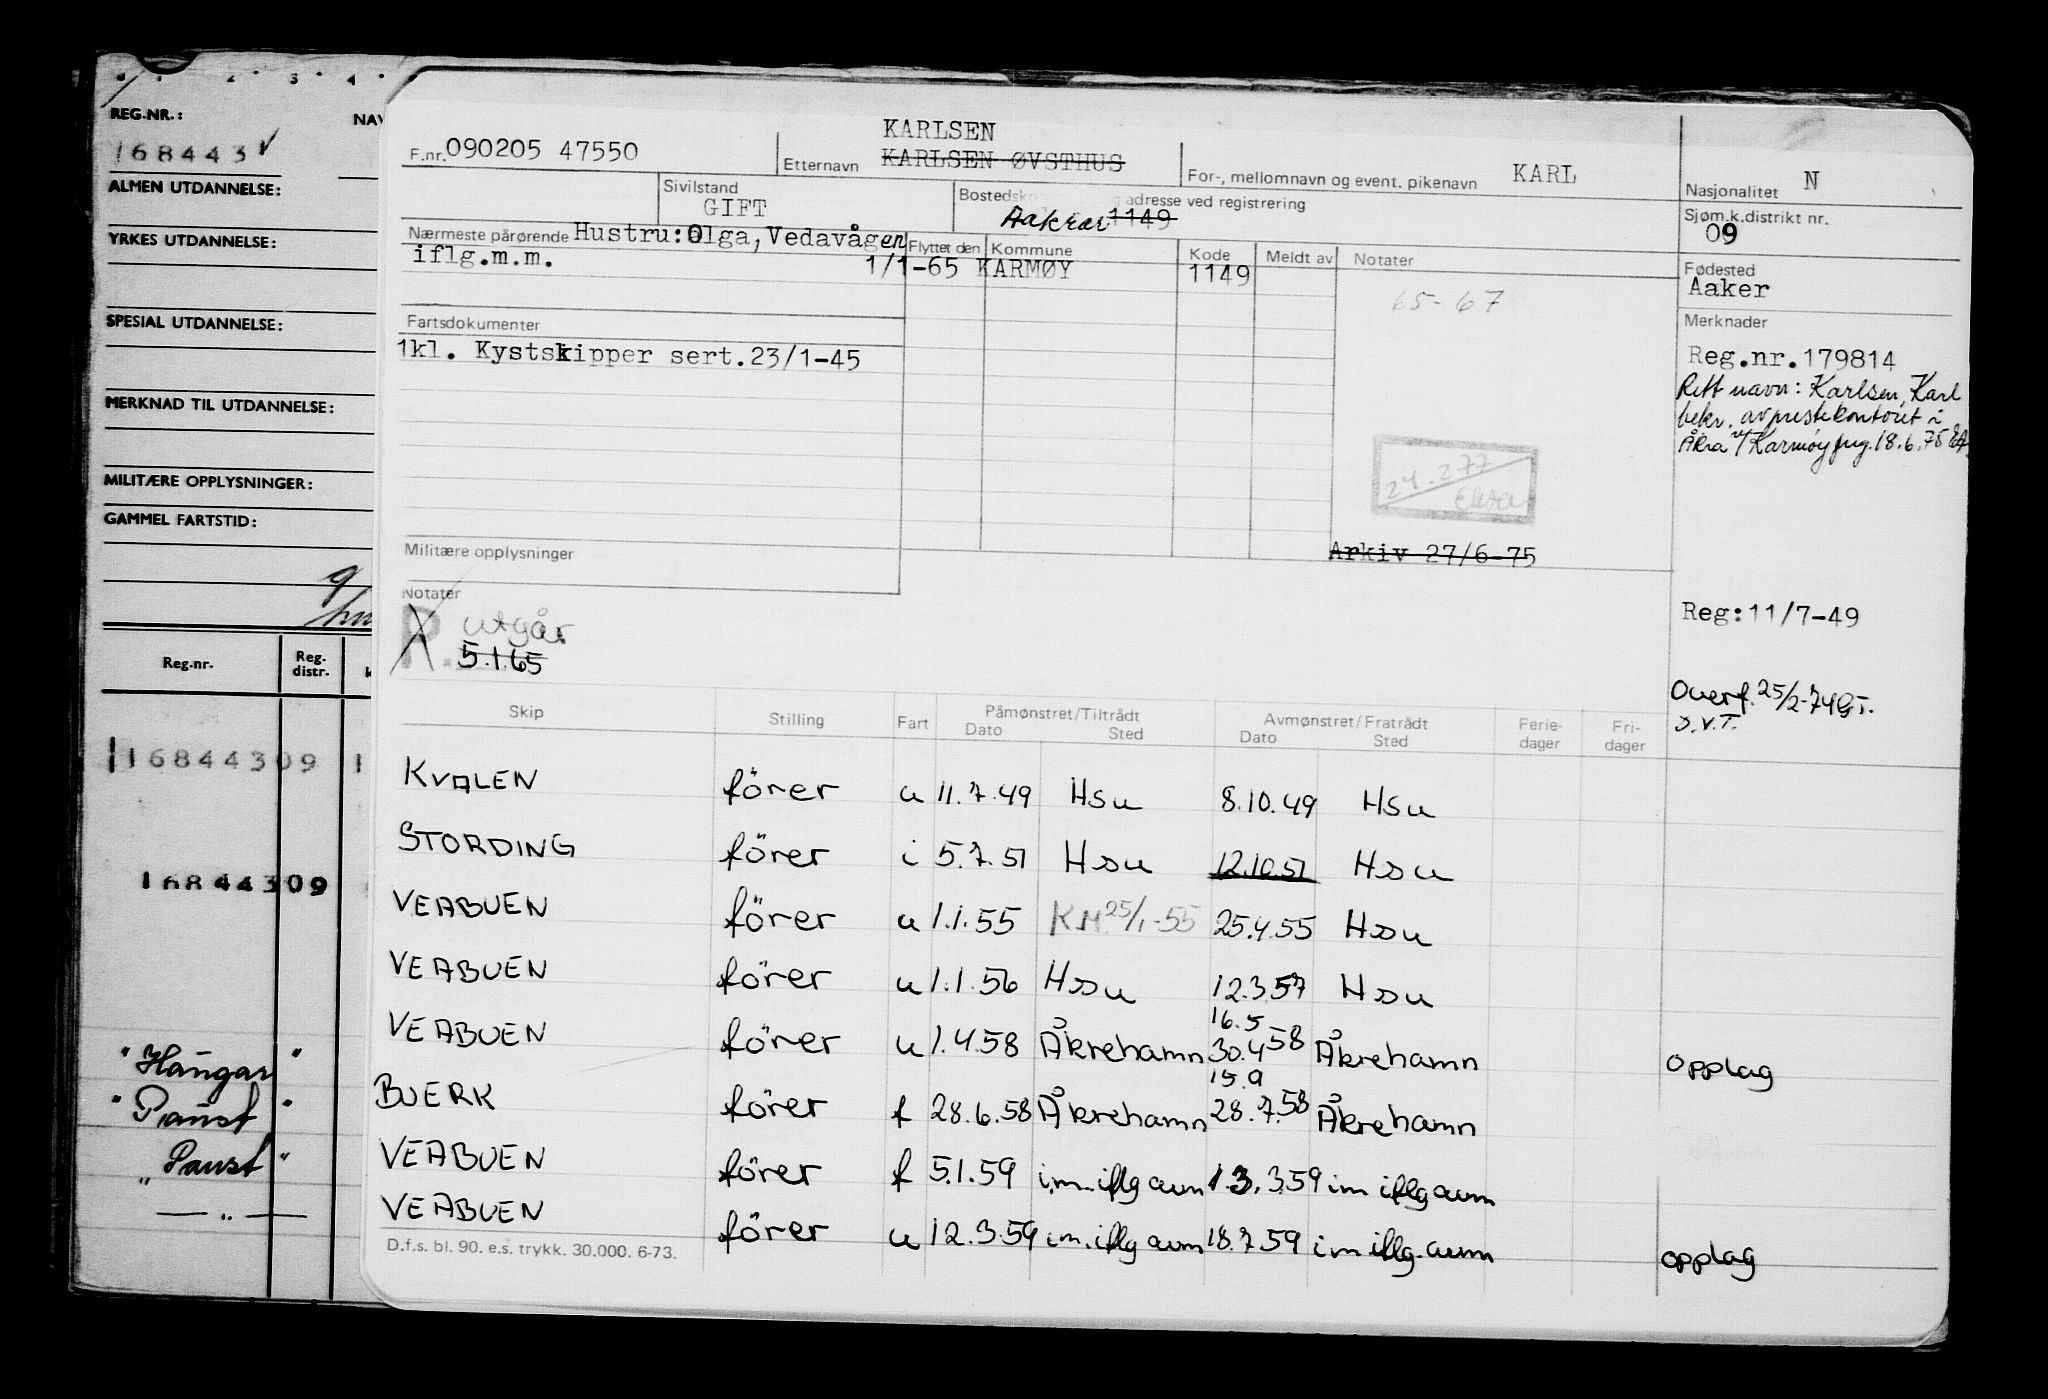 REG.NR.:
NAV
168443
ALMEN UTDANNELSE:
YRKES UTDANNELSE:
SPESIAL UTDANNELSE:
MERKNAD TIL UTDANNELSE:
MILITÆRE OPPLYSNINGER:
GAMMEL FARTSTID:
Reg.nr. Reg. distr.
16844309 1
16844309
"Haugar"
"Paust"
"Paust"
— „ —
KARLSEN
F.nr. 090205 47550 Etternavn KARLSEN ØVSTHUS For-, mellomnavn og event. pikenavn KARL Nasjonalitet N
Sivilstand GIFT Bostedsko adresse ved registrering Aakrar 1149 Sjøm.k.distrikt nr. 09
Nærmeste pårørende Hustru: Olga, Vedavågen
iflg.m.m.
Flyttet den Kommune Kode Meldt av Notater
1/1-65 KARMØY 1149
65-67
Fødested
Aaker
Fartsdokumenter
1kl. Kystskipper sert.23/1-45
Merknader
Reg.nr.179814
Rett navn: Karlsen, Karl
bekr. av prestekontoret i
Åkra v/ Karmøy 18.6.75
24.2 77
Arkiv 27/6-75
Militære opplysninger
Notater
R. utgår
5.1.65
Reg:11/7-49
Overf. 25/2-74 G.T.
S.V.T.
Skip Stilling Fart Påmønstret/Tiltrådt Dato Sted Avmønstret/Fratrådt Dato Sted Ferie-dager Fri-dager
KVALEN förer u 11.7.49 Hsu 8.10.49 Hsu
STORDING förer i 5.7.51 Hsu 12.10.51 Hsu
VEABUEN förer u 1.1.55 KM 25/1-55 25.4.55 Hsu
VEABUEN förer u 1.1.56 Hsu 12.3.57 Hsu
16.5
VEABUEN förer u 1.4.58 Åkrehamn 30.4 58 Åkrehamn opplag
15.9
BJERK förer f 28.6.58 Åkrehamn 28.7.58 Åkrehamn
VEABUEN förer f 5.1.59 i.m. iflg avm 1.3.3.59 im iflg avm
VEABUEN förer u 12.3.59 i.m. iflg avm 18.7.59 im iflg. avm opplag
D.f.s. bl. 90. e.s. trykk. 30.000. 6-73.